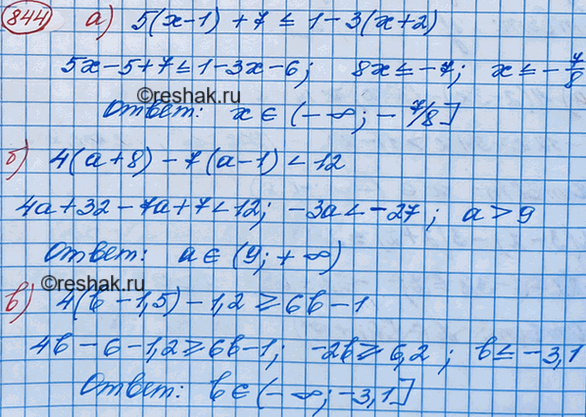 844 а) 5(x-1)+7≤1-3(x+2)
5x-5+7≤1-3x-6; 8x≤-7; x≤-7/8
©reshak.ru
Ответ: x∈(-∞;-7/8]
б) 4(a+8)-7(a-1)<12
4a+32-7a+7<12; -3a<-27; a>9
Ответ: a∈(9;+∞)
©reshak.ru
в) 4(b-1,5)-1,2≥6b-1
4b-6-1,2≥6b-1; -2b≥6,2; b≤-3,1
Ответ: b∈(-∞;-3,1]